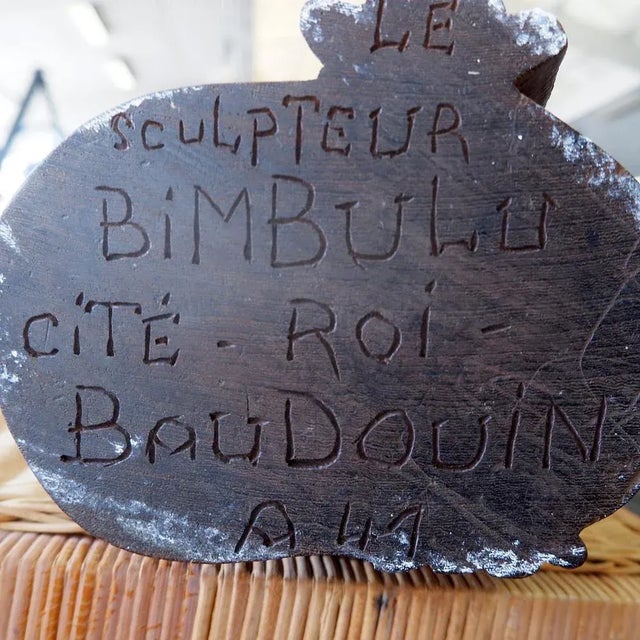 LE
SCULPTEUR
BiMBULU
CiTÉ - ROi -
BAUDOUiN
A 41